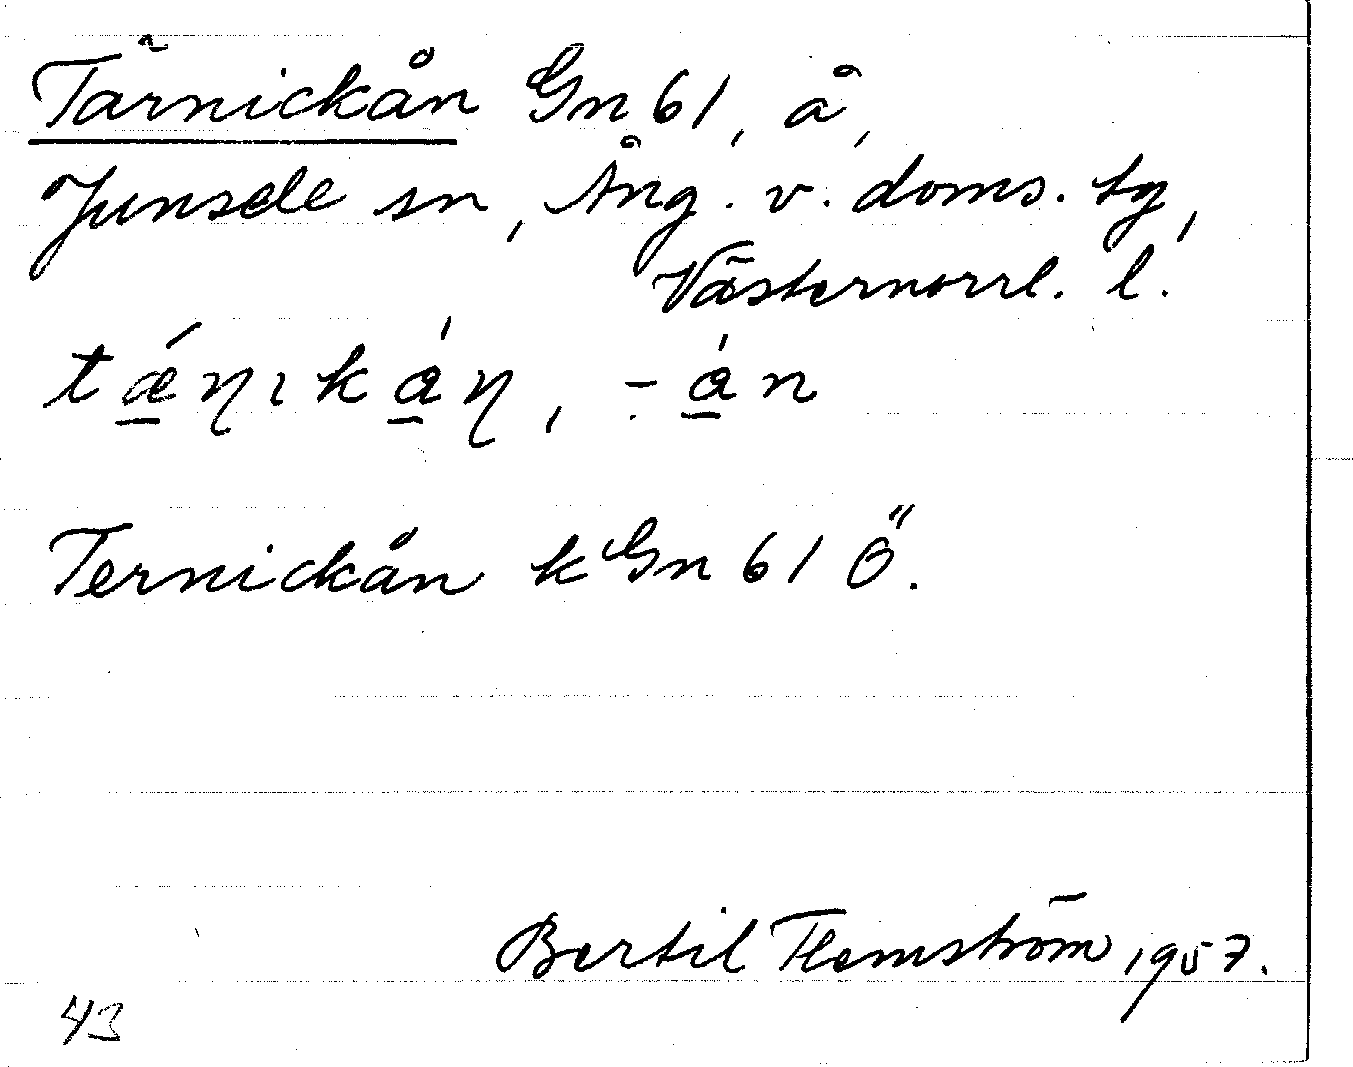 Tärnickån Gn 61, å,
Junsele sn, Ång. v. doms. tg,
Västernorrl. l.
tǽ̠ηιkǻ̠η, -ǻ̠n
Ternickån k Gn 61 Ö.
Bertil Flemström 1957.
43